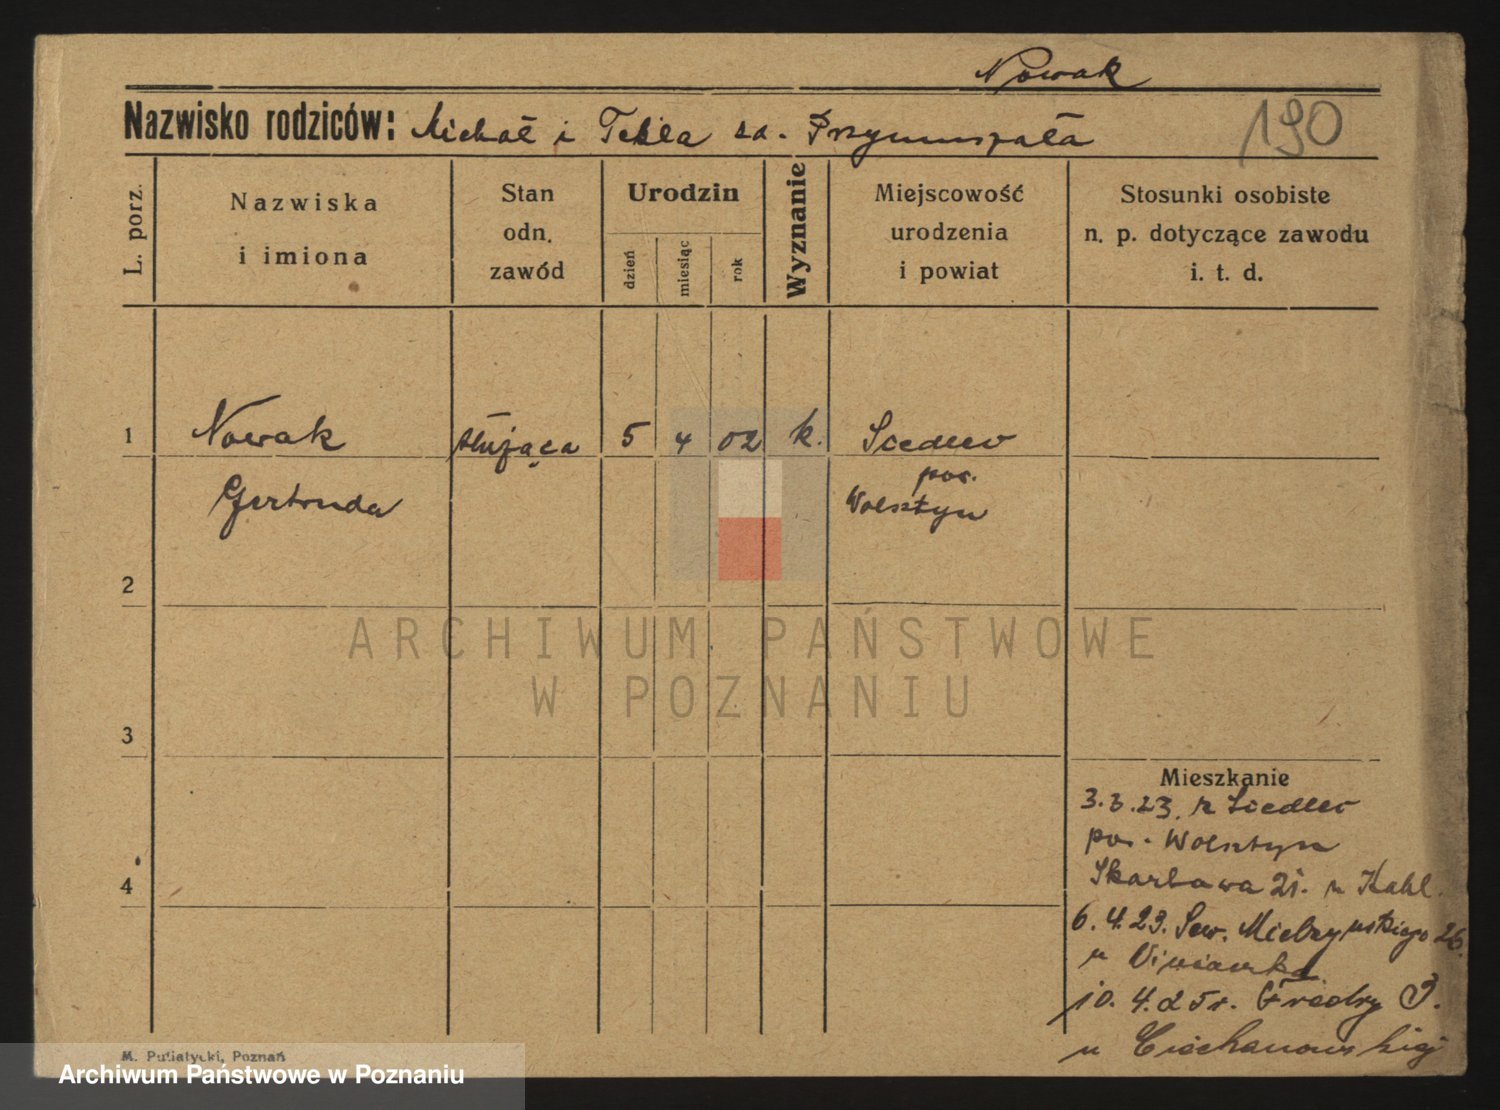 Nowak
Nazwisko rodziców: Michał i Tekla zd. Przymuszała
190
L. porz.
Nazwiska
i imiona
Stan
odn.
zawód
Urodzin
dzień
miesiąc
rok
Wyznanie
Miejscowość
urodzenia
i powiat
Stosunki osobiste
n. p. dotyczące zawodu
i. t. d.
1
Nowak
służąca
5
4
02
k.
Siedlec
pow.
Gertruda
Wolsztyn
2
ARCHIWUM PAŃSTWOWE
W POZNANIU
3
Mieszkanie
3.3.23. z Siedlec
pow. Wolsztyn
Skarbowa 21. u Kahl.
4
6.4.23. Sew. Mielżyńskiego 26.
u
10.4.25r. Fredry 3.
u Ciechanowskiej
M. Putiatycki, Poznań
Archiwum Państwowe w Poznaniu